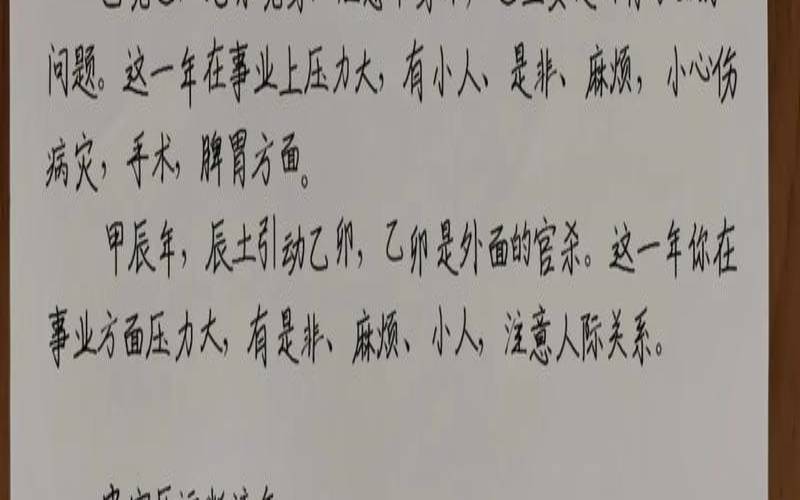 问题。这一年在事业上压力大，有小人、是非、麻烦，小心伤
病灾，手术，脾胃方面。
甲辰年，辰土引动乙卯，乙卯是外面的官杀。这一年你在
事业方面压力大，有是非、麻烦、小人，注意人际关系。